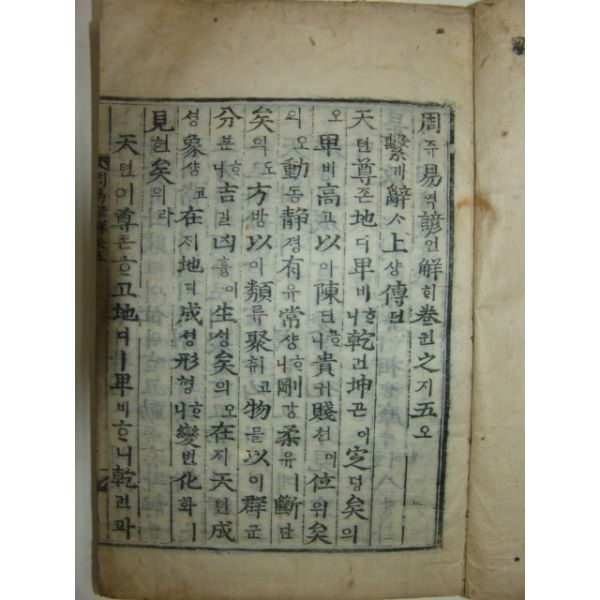 周쥬易역諺언解ᄒᆡ卷권之지五오
繫계辭ᄉᆞ上샹傳뎐
天텬尊존地디卑비니乾건坤곤이定뎡矣의
오卑비高고以이陳딘니貴귀賤쳔이位위矣
의오動동靜졍有유常샹ᄒᆞ니剛강柔유ㅣ斷단
矣의오方방以이類류聚ᄎᆔ코物믈以이群군
分분ᄒᆞ니吉길凶흉이生ᄉᆡᆼ矣의오在ᄌᆡ天텬成
셩象샹코在ᄌᆡ地디成셩形형ᄒᆞ니變변化화ㅣ
見현矣의라
天텬이尊존ᄒᆞ고地디ㅣ卑비ᄒᆞ니乾건과
周易諺解卷五